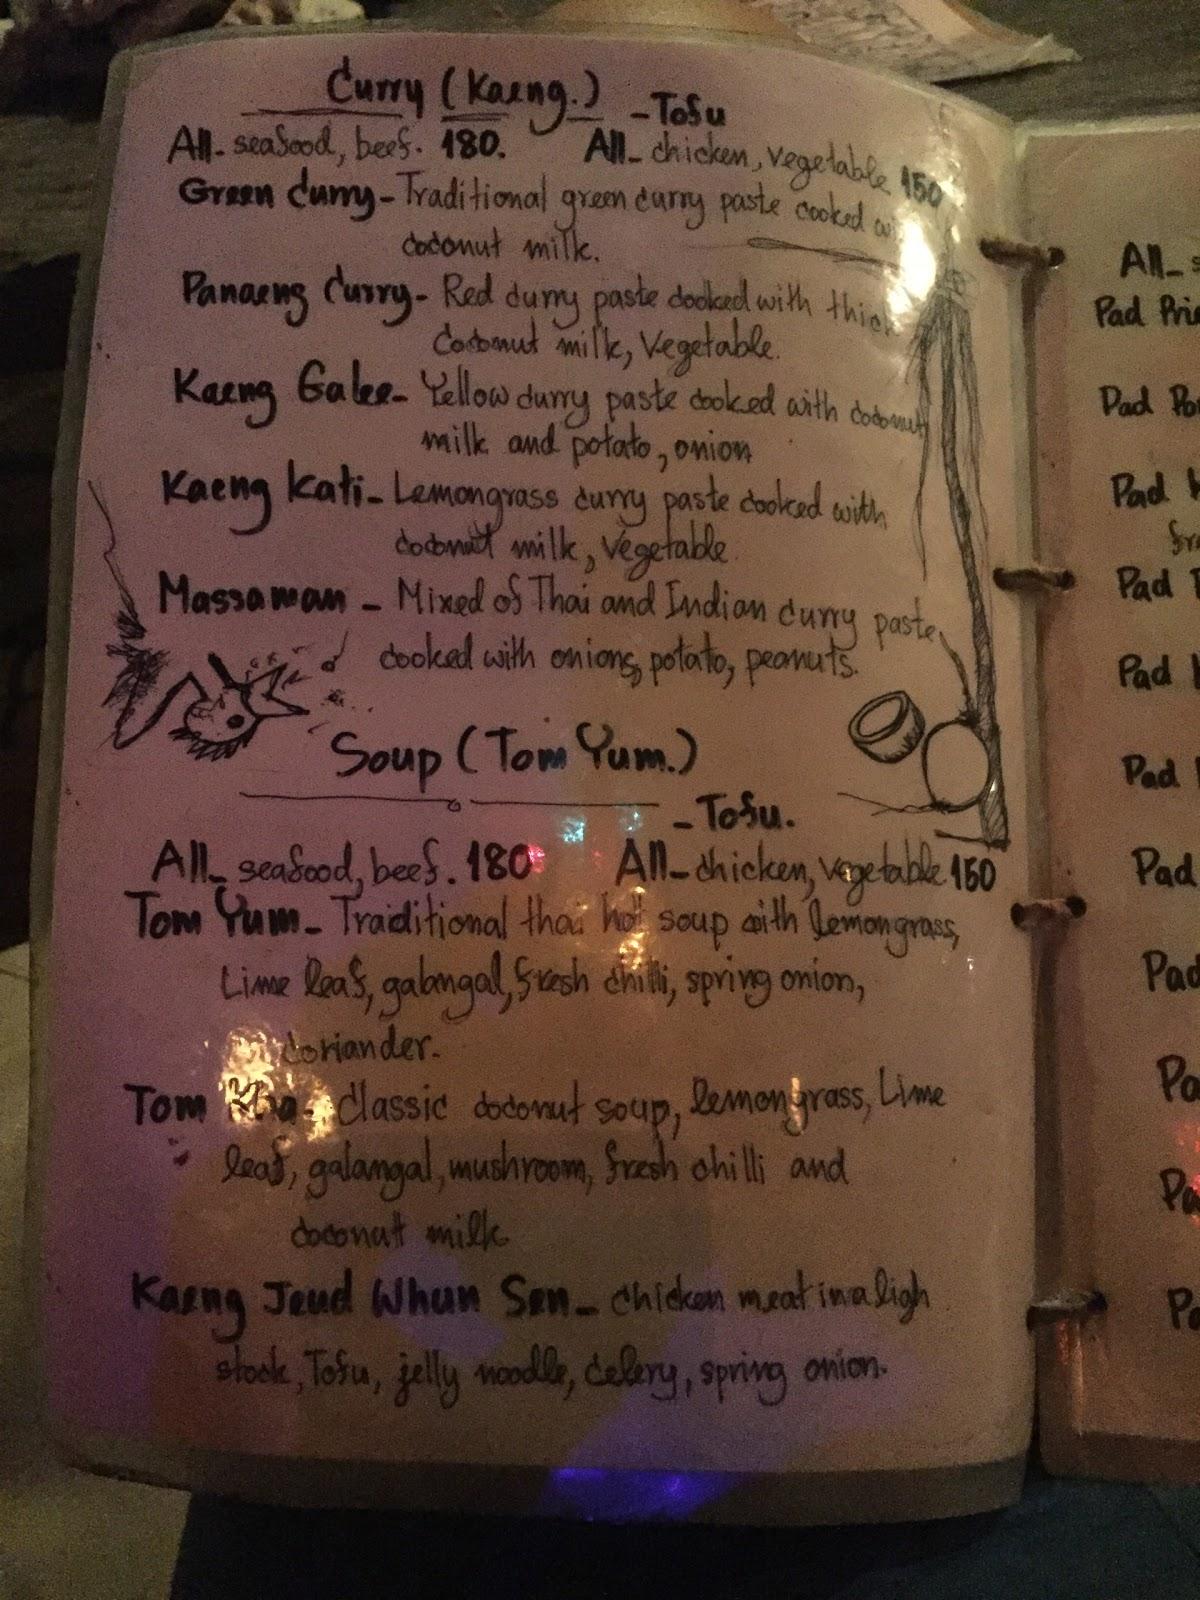 Curry (Kaeng.)
-Tofu
All- seafood, beef. 180. All- chicken, vegetable 150
Green Curry- Traditional green curry paste cooked
coconut milk.
Panaeng Curry- Red curry paste cooked with thick
Coconut milk, Vegetable.
Kaeng Galee- Yellow curry paste cooked with coconut
milk and potato, onion
Kaeng Kati- Lemongrass curry paste cooked with
coconut milk, vegetable.
Massaman - Mixed of Thai and Indian curry paste
cooked with onions, potato, peanuts.
Soup (Tom Yum.)
- Tofu.
All- seafood, beef. 180 All- chicken, vegetable 150
Tom Yum- Traditional thai hot soup with lemongrass,
Lime leaf, galangal, fresh chilli, spring onion,
coriander.
Tom Kha- Classic coconut soup, lemongrass, Lime
leaf, galangal, mushroom, fresh chilli and
coconut milk
Kaeng Jeud Whun Sen- chicken meat in a ligh
stock, Tofu, jelly noodle, celery, spring onion.
All-
Pad
Pad
Pad
Pad
Pad
Pad
Pad
Pad